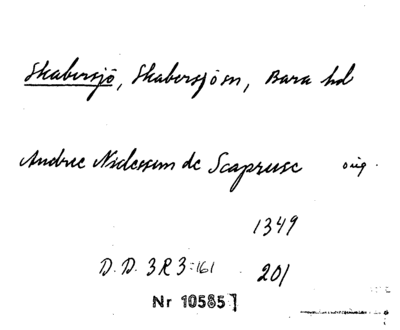 Skabersjö, Skabersjö sn, Bara hd
Andree Niclessun de Scapruse orig.
1349
D. D. 3 R 3:161 201
Nr 10585